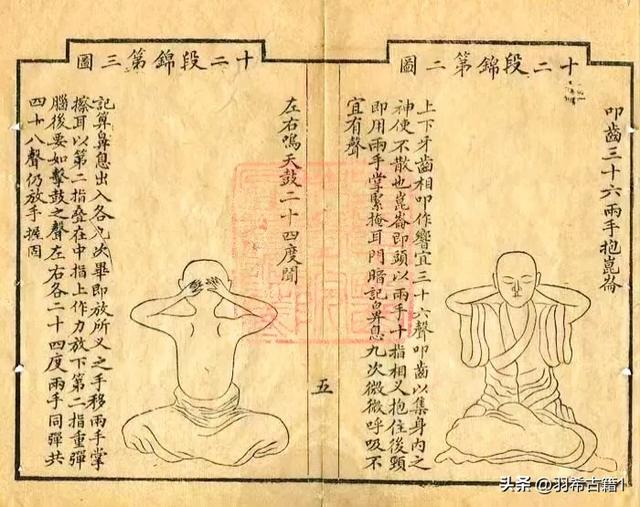 十二段錦第二圖
叩齒三十六兩手抱崑崙
上下牙齒相叩作響宜三十六聲叩齒以集身內之
神使不散也崑崙即頭以兩手十指相叉抱住後頸
即用兩手掌緊掩耳門暗記鼻息九次微微呼吸不
宜有聲
五
十二段錦第三圖
左右鳴天鼓二十四度聞
記算鼻息出入各九次畢即放所叉之手移兩手掌
擦耳以第二指叠在中指上作力放下第二指重彈
腦後要如擊鼓之聲左右各二十四度兩手同彈共
四十八聲仍放手握固
头条 @羽希古籍1